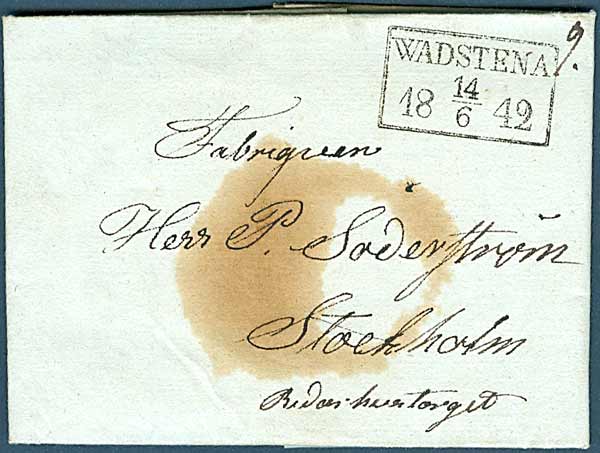 WADSTENA
18 14/6 42
9.
Fabriqueen
Herr P. Söderström
Stockholm
Riddarhustorget